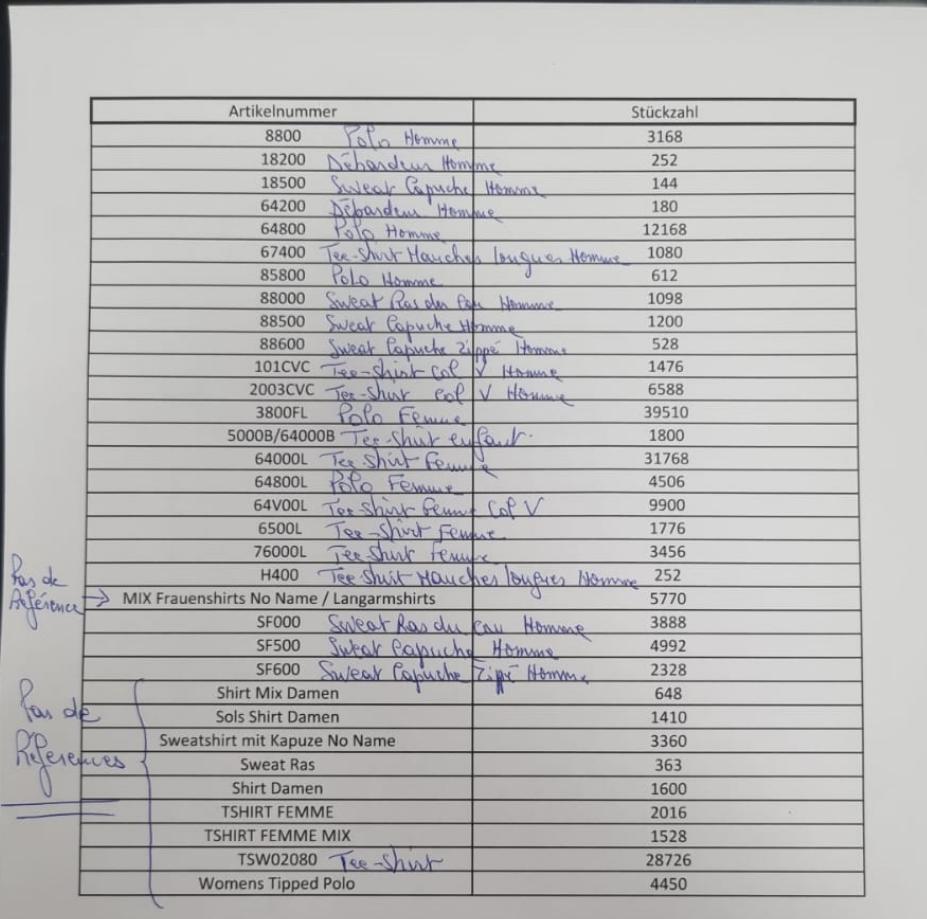 Artikelnummer Stückzahl
8800 Polo Homme 3168
18200 Débardeur Homme 252
18500 Sweat Capuche Homme 144
64200 Débardeur Homme 180
64800 Polo Homme 12168
67400 Tee-Shirt Manches longues Homme 1080
85800 Polo Homme 612
88000 Sweat Ras du Cou Homme 1098
88500 Sweat Capuche Homme 1200
88600 Sweat Capuche Zippé Homme 528
101CVC Tee-Shirt Col V Homme 1476
2003CVC Tee-Shirt Col V Homme 6588
3800FL Polo Femme 39510
5000B/64000B Tee-Shirt enfant 1800
64000L Tee Shirt Femme 31768
64800L Polo Femme 4506
64V00L Tee Shirt Femme Col V 9900
6500L Tee-Shirt Femme 1776
76000L Tee Shirt Femme 3456
H400 Tee Shirt Manches longues Homme 252
Pas de
Référence → MIX Frauenshirts No Name / Langarmshirts 5770
SF000 Sweat Ras du Cou Homme 3888
SF500 Sweat Capuche Homme 4992
SF600 Sweat Capuche Zippé Homme 2328
Pas de
Références
Shirt Mix Damen 648
Sols Shirt Damen 1410
Sweatshirt mit Kapuze No Name 3360
Sweat Ras 363
Shirt Damen 1600
TSHIRT FEMME 2016
TSHIRT FEMME MIX 1528
TSW02080 Tee-Shirt 28726
Womens Tipped Polo 4450